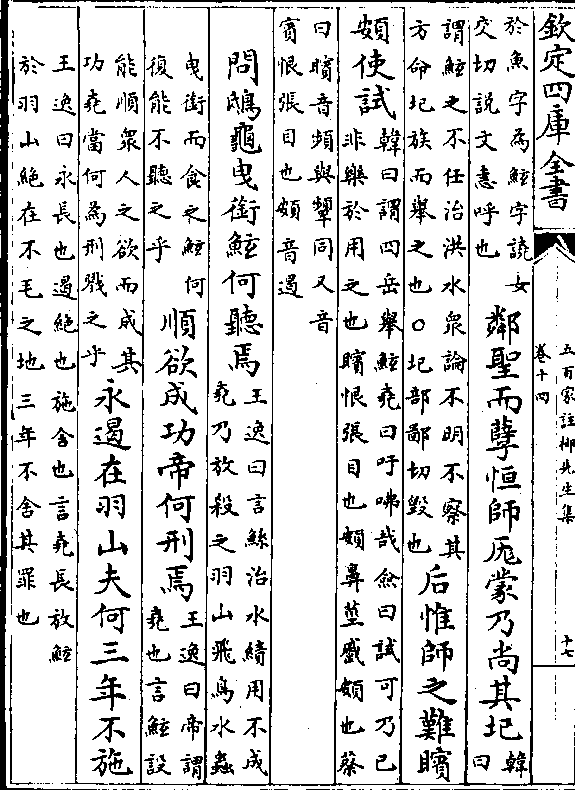 欽定四庫全書
五百家註柳先生集
卷十四
十七
於魚字為鯀字譊女
交切説文恚呼也
鄰聖而孽恒師厖蒙乃尚其圮
韓曰
謂鯀之不任治洪水衆論不明不察其
方命圮族而舉之也○圮部鄙切毀也
后惟師之難矉
頞使試
韓曰謂四岳舉鯀堯曰吁咈哉僉曰試可乃已
非樂於用之也矉恨張目也頞鼻莖蹙頞也蔡
曰矉音頻與顰同又音
賓恨張目也頞音遏
問鴟龜曳銜鯀何聽焉
王逸曰言鯀治水績用不成
堯乃放殺之羽山飛鳥水蟲
曳銜而食之鯀何
復能不聽之乎
順欲成功帝何刑焉
王逸曰帝謂
堯也言鯀設
能順衆人之欲而成其
功堯當何為刑戮之乎
永遏在羽山夫何三年不施
王逸曰永長也遏絶也施舍也言堯長放鯀
於羽山絶在不毛之地三年不舍其罪也